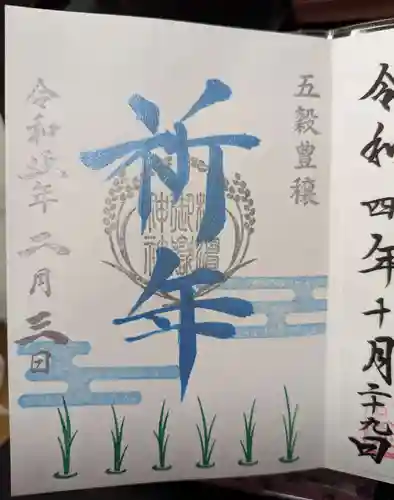 令和四年十月二十九日
五穀豊穣
祈年
令和五年二月三日